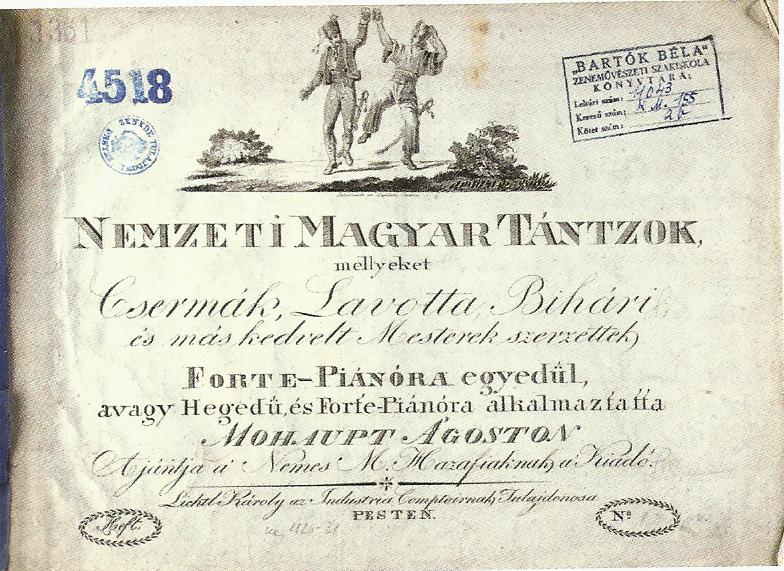 1361
4518
„BARTÓK BÉLA“
ZENEMŰVÉSZETI SZAKISKOLA
KÖNYVTÁRA:
Leltári szám: 4043
Kereső szám: K.M. 155
Kötet szám:
NEMZETI MAGYAR TÁNTZOK,
mellyeket
Csermák, Lavotta, Bihári
és más kedvelt Mesterek szerzettek,
FORTE-PIÁNÓRA egyedűl,
avagy Hegedű, és Forte-Piánóra alkalmaztatta
MOHAUPT ÁGOSTON
Ajánlja a' Nemes M. Hazafiaknak a' Kiadó.
Lichtl Károly az Industria Comptoirnak Tulajdonosa
PESTEN.
Heft.
Nº